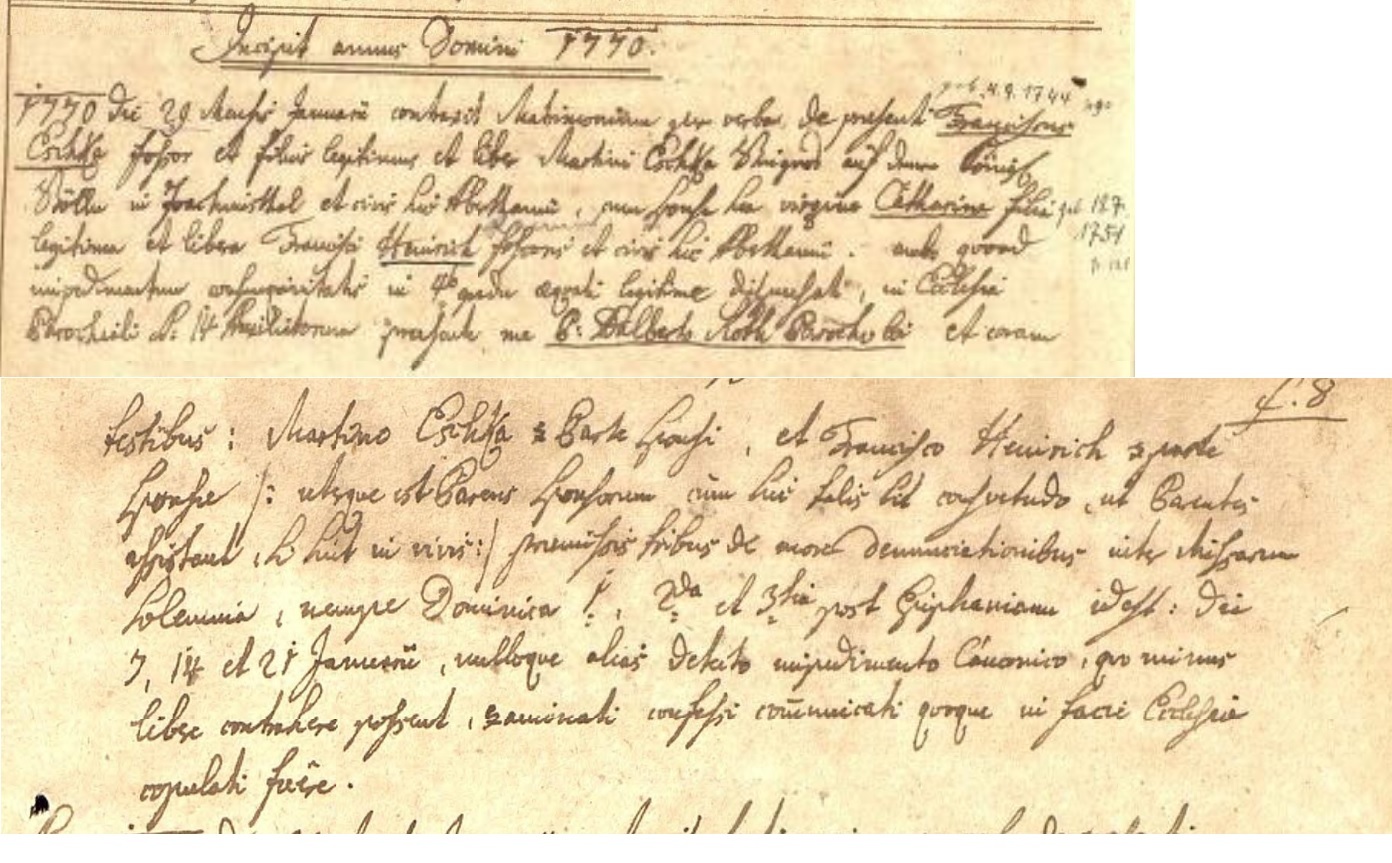 Incipit annus Domini 1770.
1770 die 29 Mensis Januarii contraxit Matrimonium per verba de presenti Franciscus
Eschka fossor et filius legitimus et liber Martini Eschka auf dem König
in Joachimsthal et civis hic Abethamii, cum sponsa sua virgine Catharina filia
legitima et libera Francisci Heinrich fossoris et civis hic Abethamii. ambo quoad
impedimentum consanguinitatis in 4to gradu æquali legitime dispensati, in Ecclesia
Parochiali S. 14 Auxiliatorum presente me P: Dalberto Roth Parocho loci et coram
4.9.1744
1751
f. 8
testibus: Martino Eschka ex Parte sponsi, et Francisco Heinrich ex parte
sponse /: uterque est Parens sponsorum cum hic talis sit consvetudo, ut Parentes
assistant, si sint in vivis :/ premissis tribus de more denunciationibus inter Missarum
solemnia, nempe Dominica 1., 2da et 3tia post Epiphaniam id est: die
7, 14 et 21 Januarii, nulloque alias detecto impedimento Canonico, quo minus
libere contrahere possent, examinati confessi com̄unicati quoque in facie Ecclesiæ
copulati fuere.